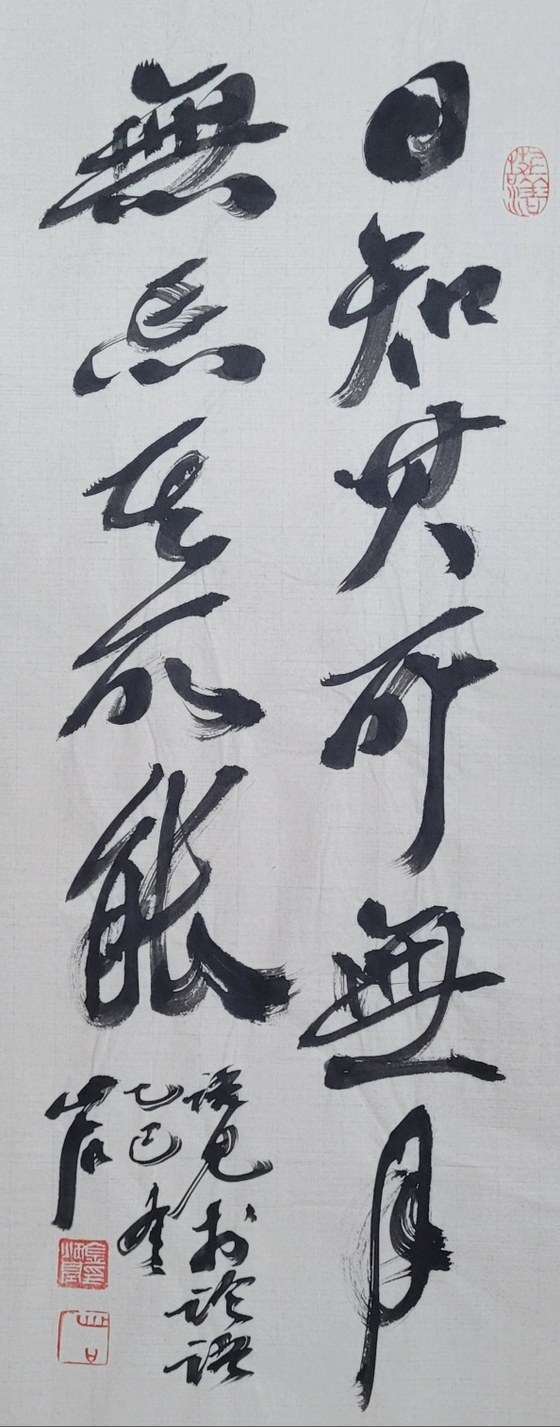 日知其所無月
無忘其所能
語見於論語
乙巳